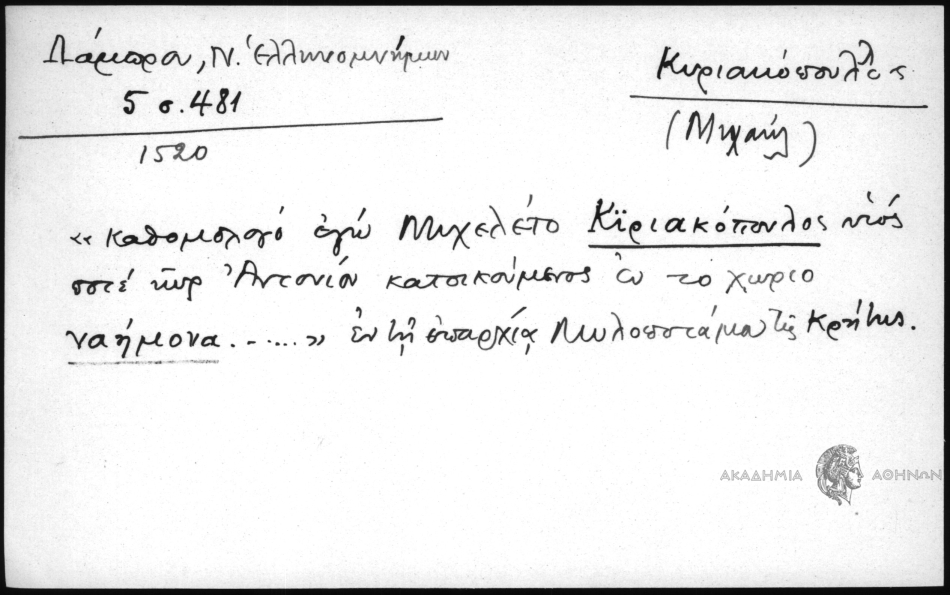 Λάμπρου, Ν. Ἑλληνομνήμων
5 σ. 481
1520
Κυριακόπουλος
(Μιχαήλ)
«καθομολογό ἐγώ Μιχελέτο Κϊριακόπουλος υἱός
ποτέ κῦρ Ἀντονίου κατοικούμενος ἐν το χωριο
ναήμονα.-....» ἐν τῇ ἐπαρχίᾳ Μυλοποτάμου τῆς Κρήτης.
ΑΚΑΔΗΜΙΑ ΑΘΗΝΩΝ